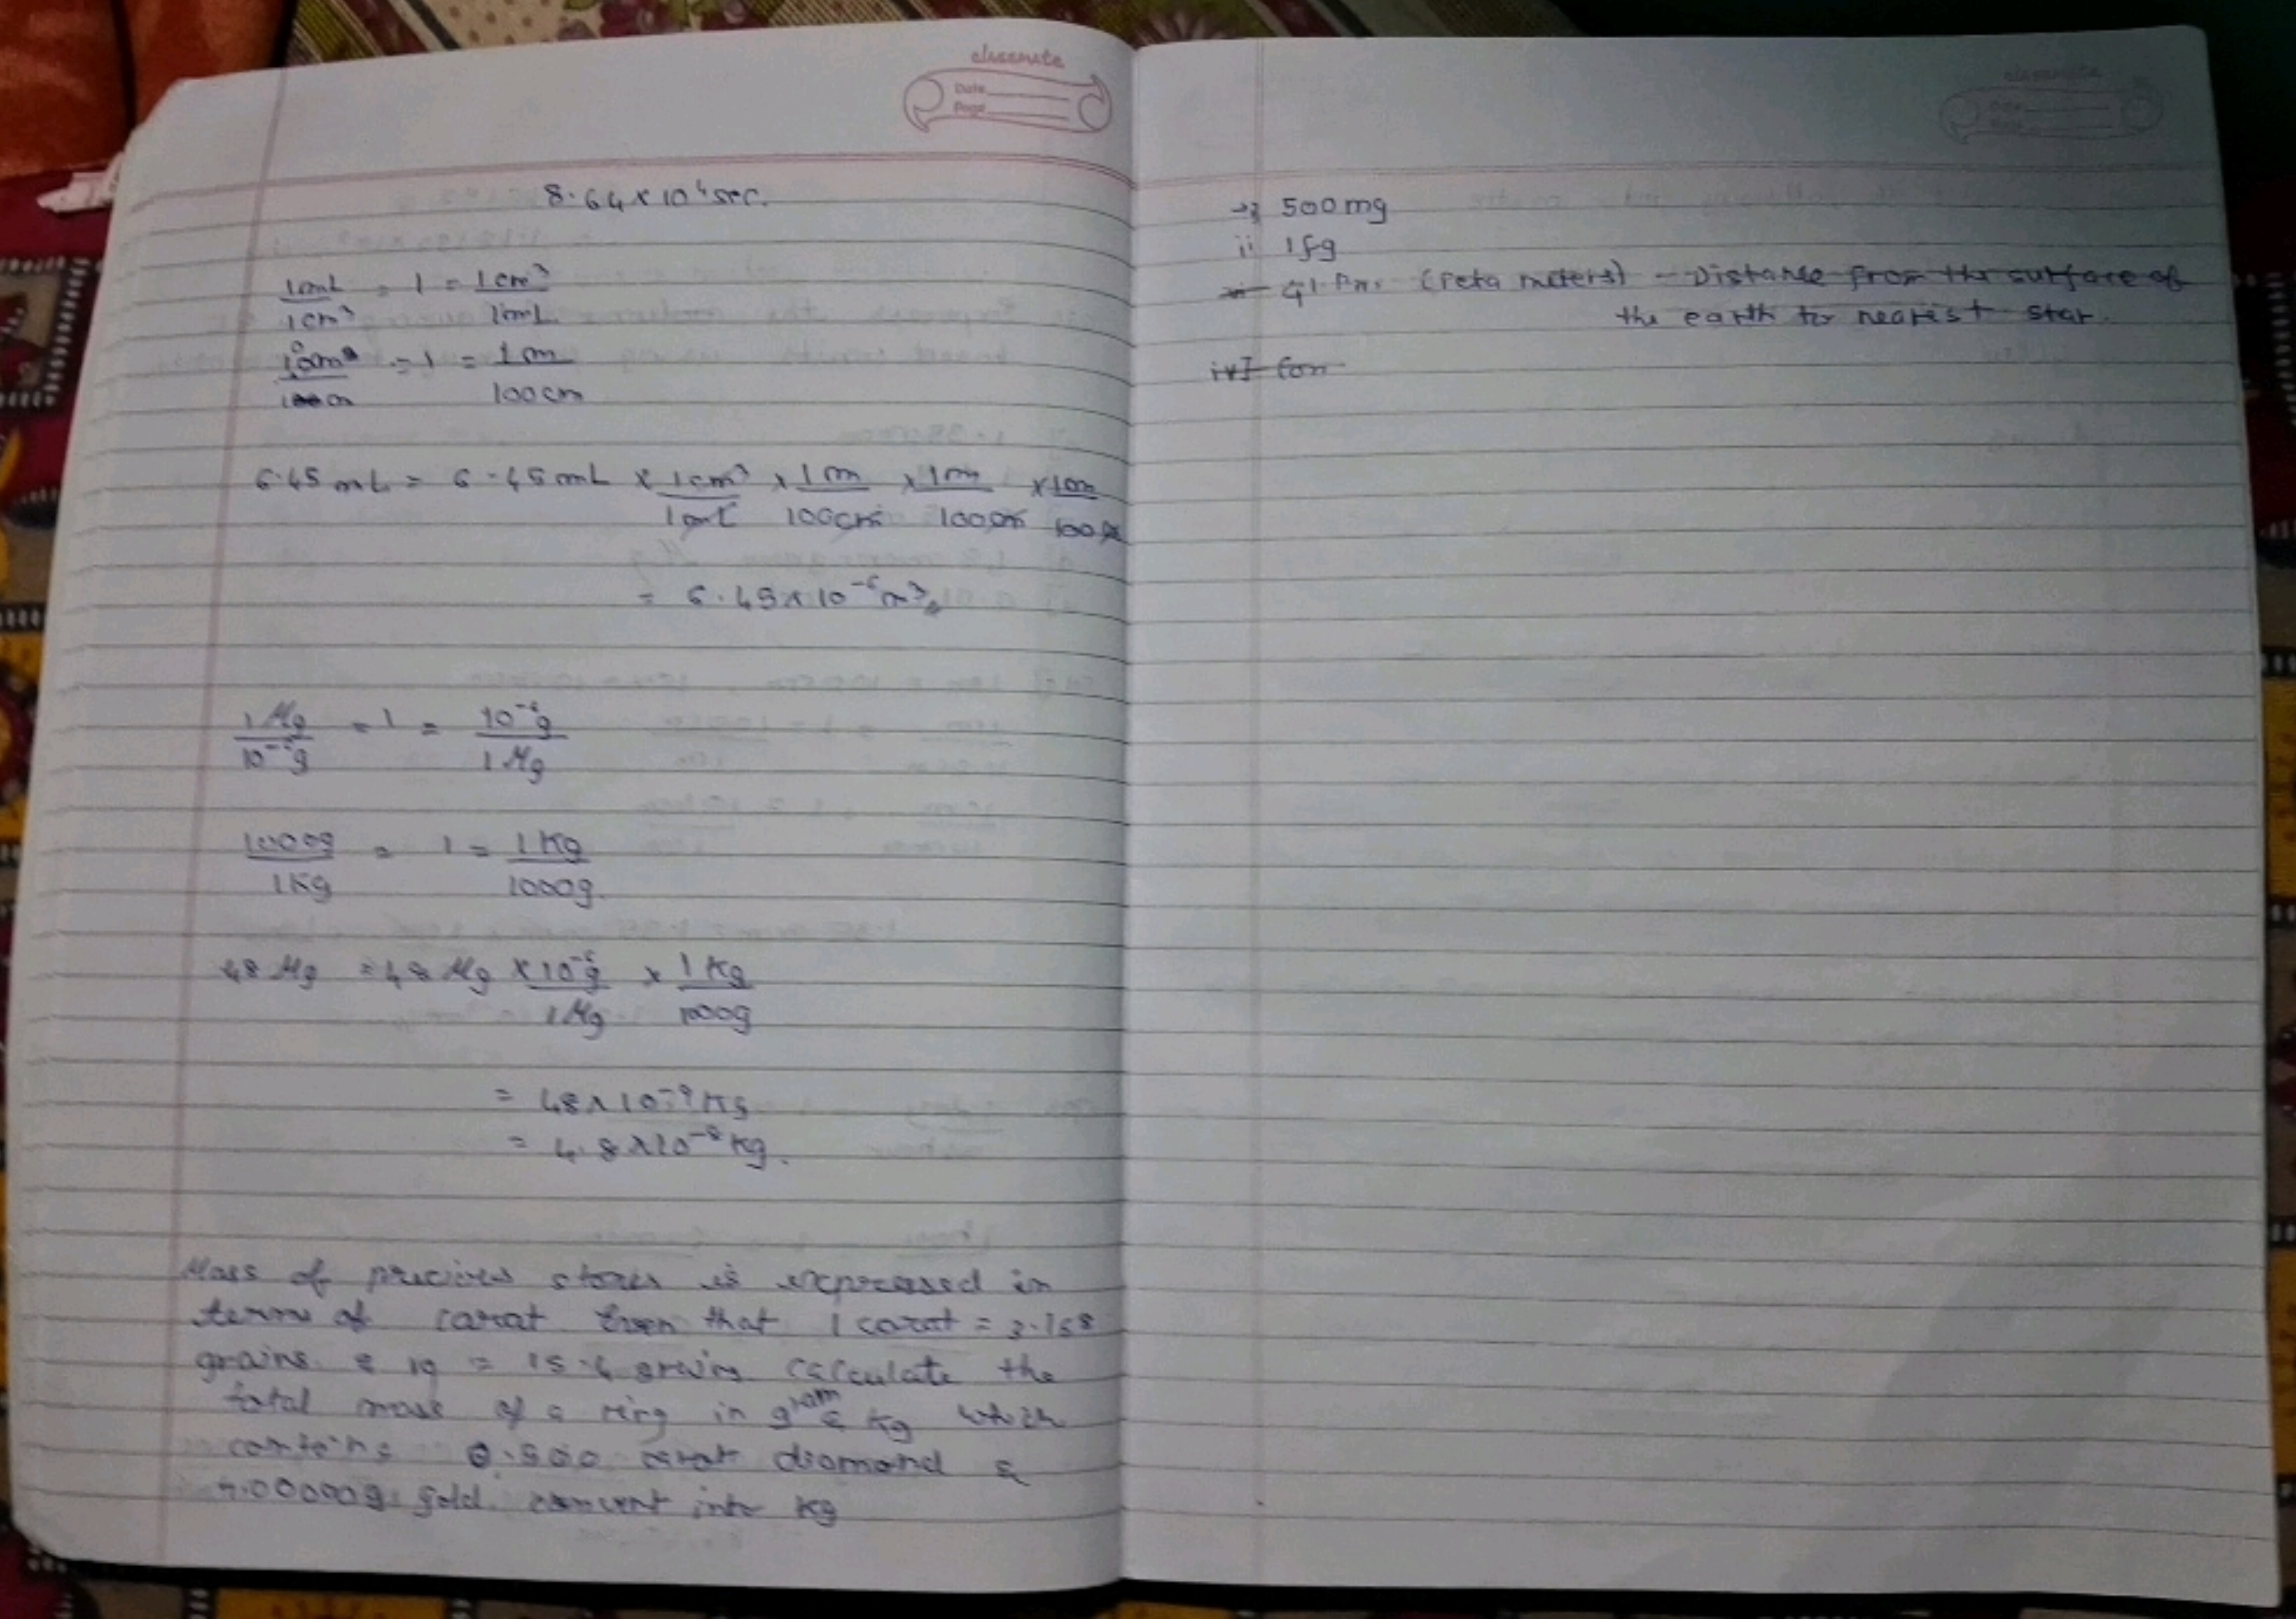 classmate
Date
Page
8.64 x 10⁴ sec.
1mL / 1cm³ = 1 = 1cm³ / 1mL
= 1 = 1m / 100cm
6.45 mL = 6.45 mL x 1cm³ / 1mL x 1m / 100cm x 1m / 100cm x 1m / 100cm
= 6.45 x 10⁻⁶ m³
1 Mg / 10⁻⁶g = 1 = 10⁻⁶g / 1 Mg
1000g / 1Kg = 1 = 1 Kg / 1000g.
48 Mg = 48 Mg x 10⁻⁶g / 1 Mg x 1 Kg / 1000g
= 48 x 10⁻⁹ Kg
= 4.8 x 10⁻⁸ Kg.
Mass of precious stones is expressed in
terms of carat that 1 carat = 3.168
grains & 1g = 15.4 grains calculate the
total mass of a ring in gram & Kg which
contains 0.500 carat diamond &
7.00000g gold. convert into Kg
classmate
Date
Page
500 mg
ii 1fg
41 Pm. (Peta meters) - Distance from the surface of
the earth to nearest star.
iv